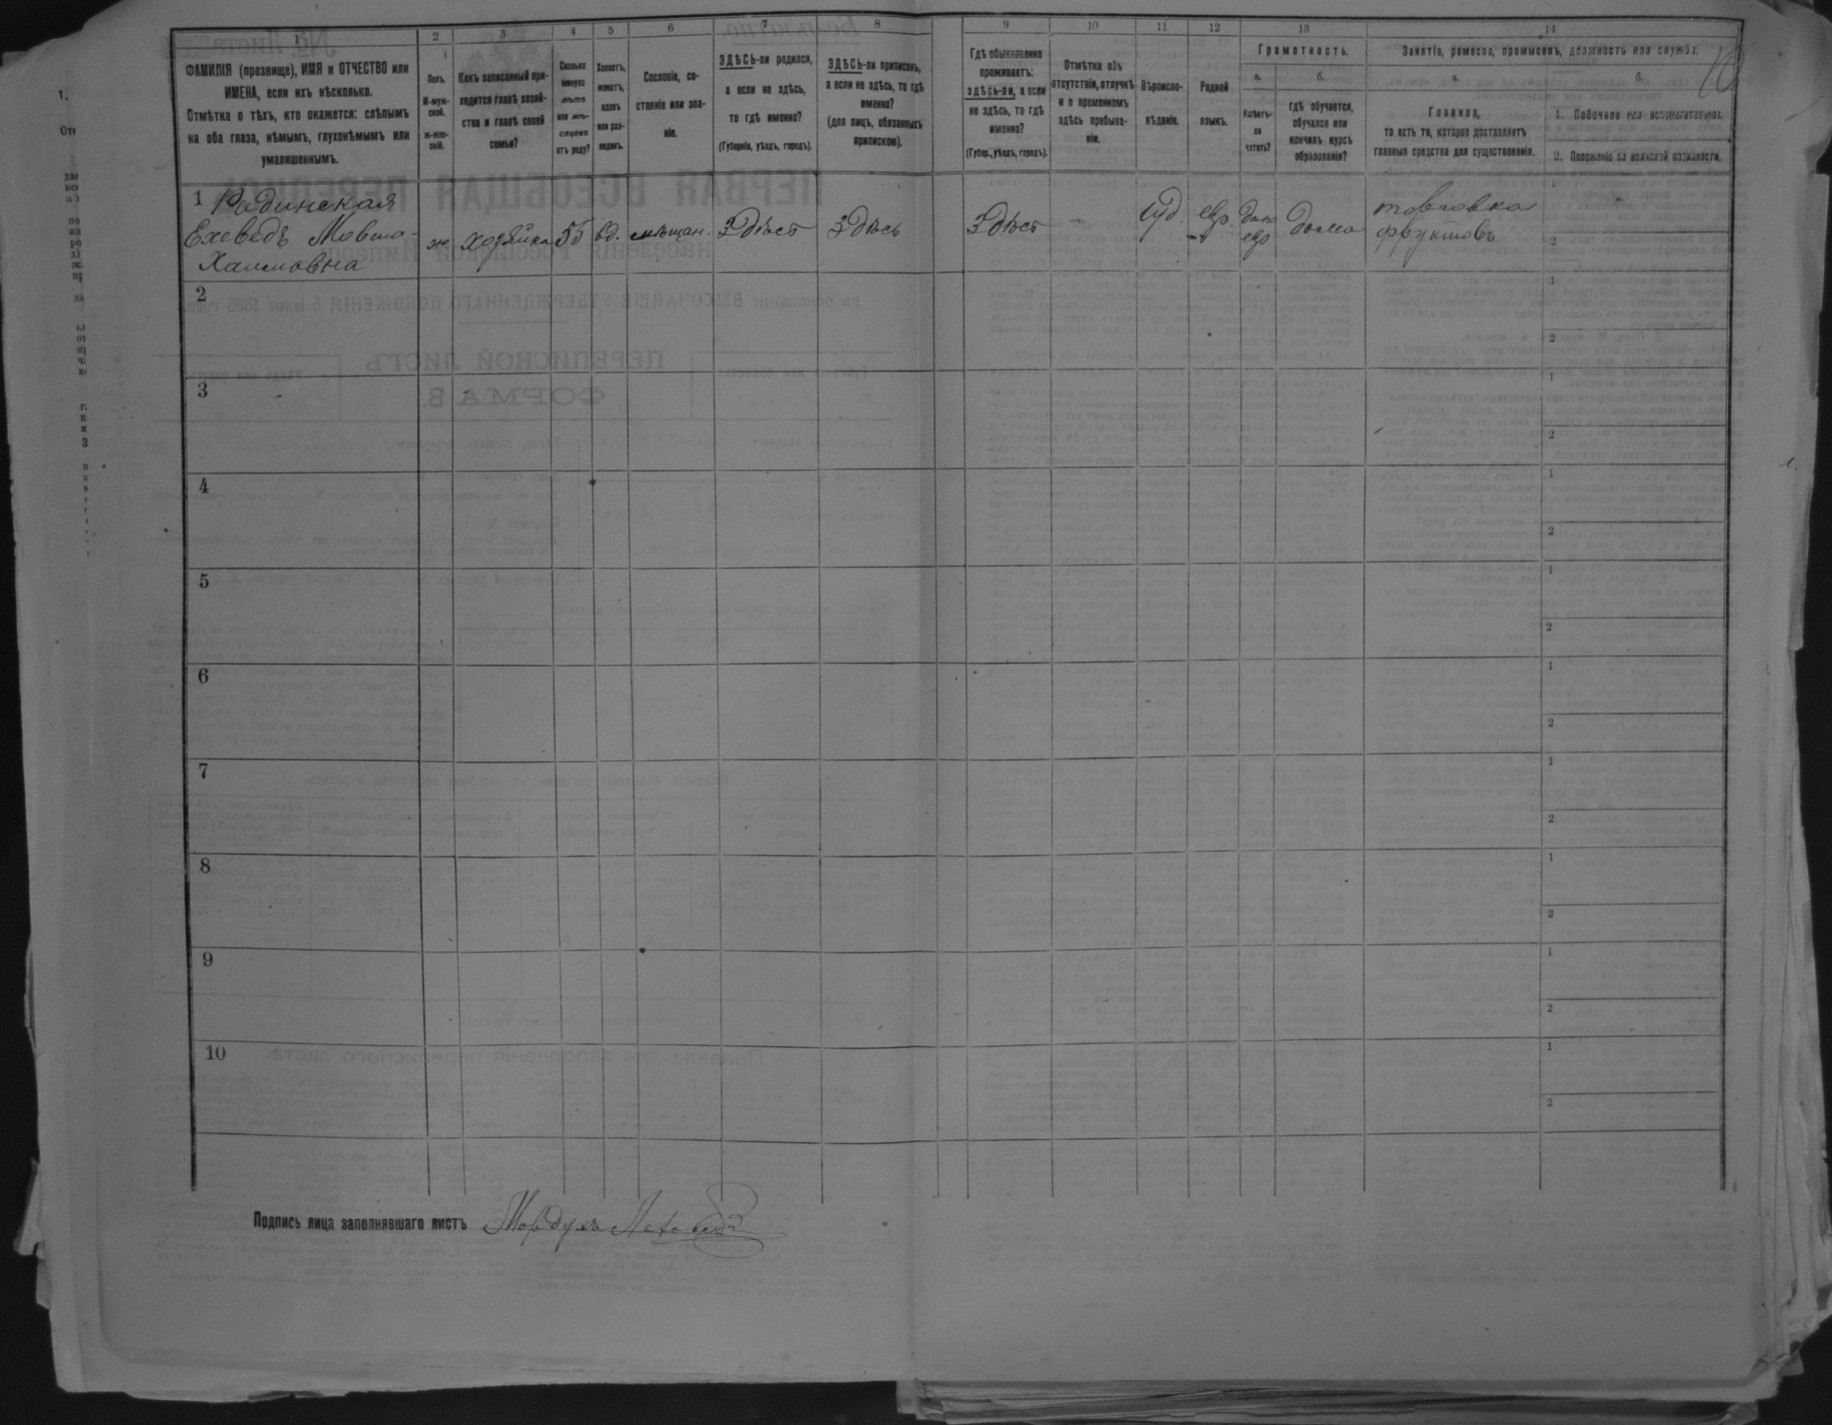 1
2
3
4
5
6
7
8
9
10
11
12
13
14
ФАМИЛІЯ (прозвище), ИМЯ и ОТЧЕСТВО или
ИМЕНА, если ихъ нѣсколько.
Отмѣтка о тѣхъ, кто окажется: слѣпымъ
на оба глаза, нѣмымъ, глухонѣмымъ или
умалишеннымъ.
Полъ.
М-муж-
ской.
ж-жен-
скій.
Какъ записанный при-
ходится главѣ хозяй-
ства и главѣ своей
семьи?
Сколько
минуло
лѣтъ
или мѣ-
сяцевъ
отъ роду?
Холостъ,
женатъ,
вдовъ
или раз-
веденъ.
Сословіе, со-
стояніе или зва-
ніе.
ЗДѢСЬ-ли родился,
а если не здѣсь,
то гдѣ именно?
(Губернія, уѣздъ, городъ).
ЗДѢСЬ-ли приписанъ,
а если не здѣсь, то гдѣ
именно?
(для лицъ, обязанныхъ
припискою).
Гдѣ обыкновенно
проживаетъ:
здѣсь-ли, а если
не здѣсь, то гдѣ
именно?
(Губер., уѣздъ, городъ).
Отмѣтка объ
отсутствіи, отлучкѣ
и о временномъ
здѣсь пребыва-
ніи.
Вѣроиспо-
вѣданіе.
Родной
языкъ.
Грамотность.
а.
б.
Умѣетъ-
ли
читать?
гдѣ обучается,
обучался или
кончилъ курсъ
образованія?
Занятіе, ремесло, промыселъ, должность или служба.
а.
б.
Главное,
то есть то, которое доставляетъ
главныя средства для существованія.
1. Побочное или вспомогательное.
2. Положеніе по воинской повинности.
1 Радинская
Ехеведъ Мовша-
Хаимовна
ж
хозяйка
55
вд.
мѣщан.
Здѣсь
Здѣсь
Здѣсь
-
іуд.
евр.
евр
дома
торговка
фруктовъ
1
2
2
1
2
3
1
2
4
1
2
5
1
2
6
1
2
7
1
2
8
1
2
9
1
2
10
1
2
Подпись лица заполнявшаго листъ